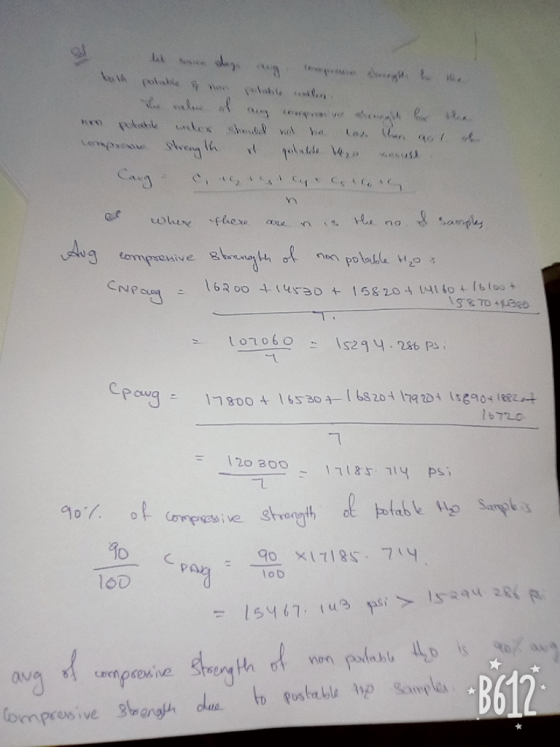 Sol
let seven days avg. compressive strength for the
both potable & non potable water.
The value of avg compressive strength for the
non potable water should not be less than 90% of
compressive strength of potable H2O result
Cavg = C1 + C2 + C3 + C4 + C5 + C6 + C7
n
where there are n is the no of samples
Avg compressive strength of non potable H2O :
CNPavg = 16200 + 14530 + 15820 + 14160 + 16100 +
15870 +
7.
= 107060 / 7 = 15294.286 psi
CPavg = 17800 + 16530 + 16820 + 17920 + 15690 + 18820 +
16720
7
= 120300 / 7 = 17185.714 psi
90% of compressive strength of potable H2O sample is
90/100 CPAvg = 90/100 × 17185.714
= 15467.143 psi > 15294.286 psi
avg of compressive strength of non portable H2O is 90% avg
compressive strength due to postable H2O samples.
B612